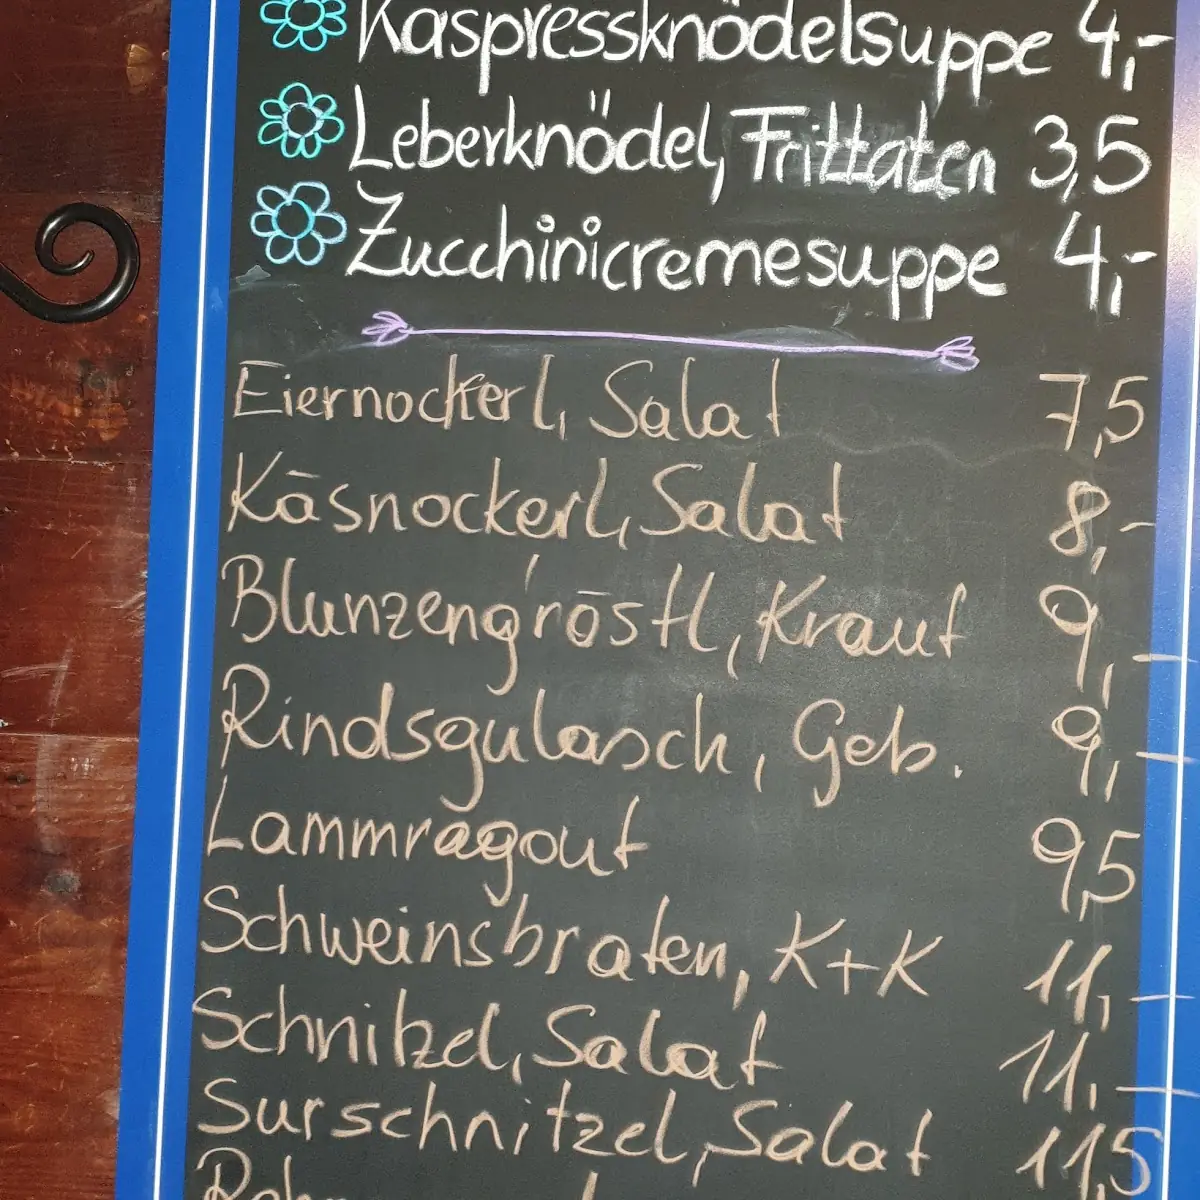 Kaspressknödelsuppe 4,-
Leberknödel, Frittaten 3,5
Zucchinicremesuppe 4,-
Eiernockerl, Salat 7,5
Käsnockerl, Salat 8,-
Blunzengröstl, Kraut 9,-
Rindsgulasch, Geb. 9,-
Lammragout 9,5
Schweinsbraten, K+K 11,-
Schnitzel, Salat 11,-
Surschnitzel, Salat 11,5